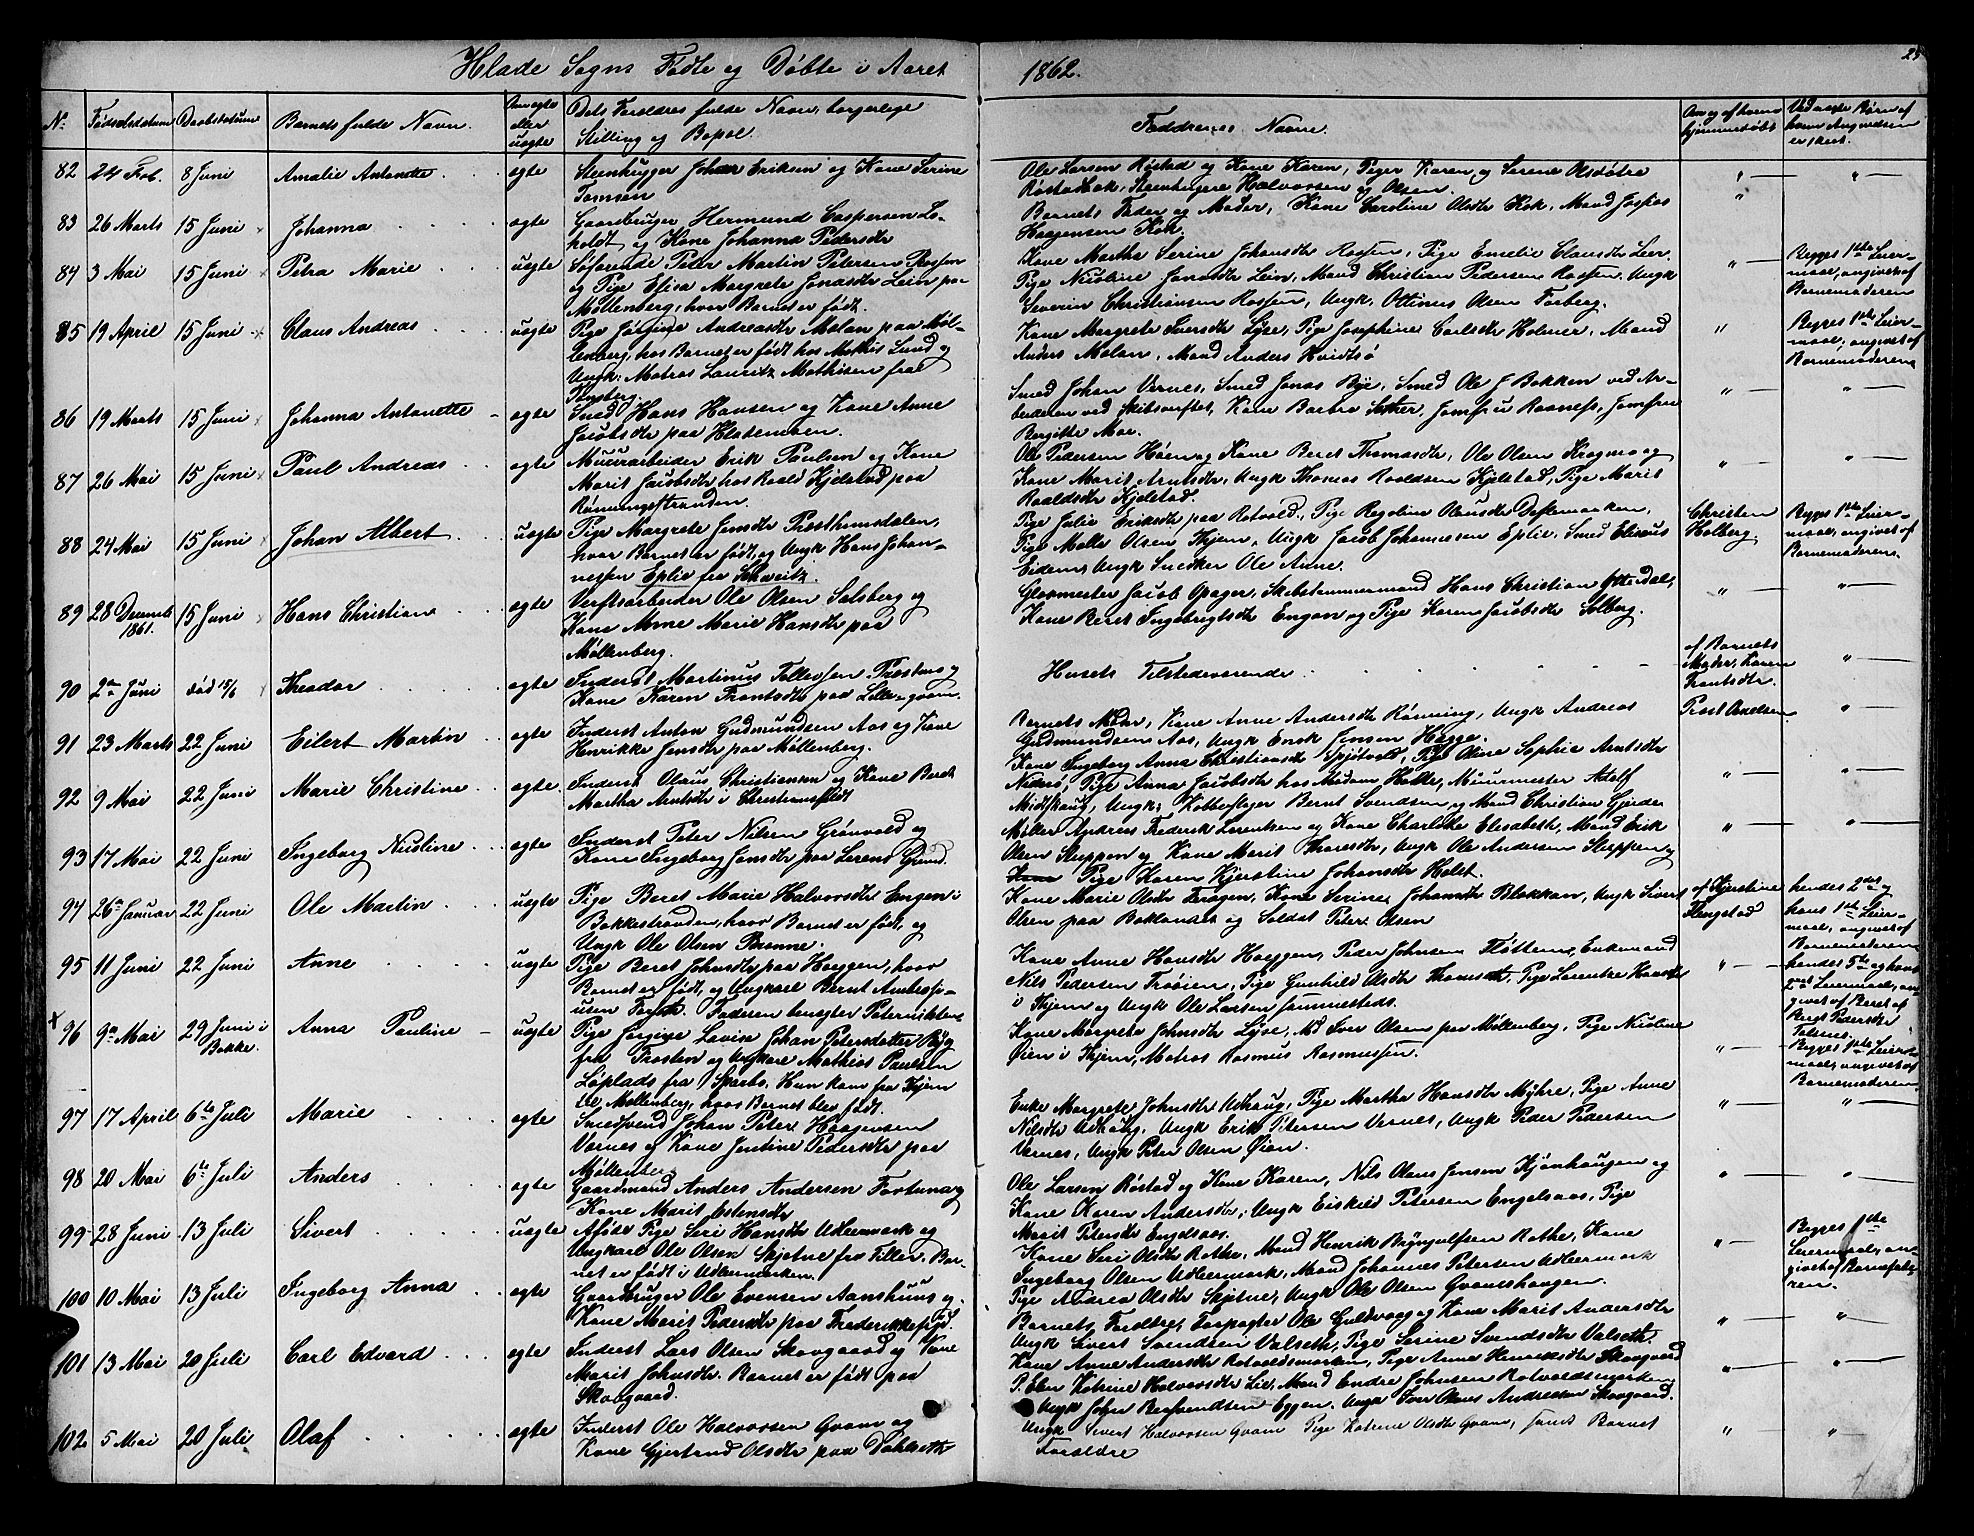 Hlade Sogns Fødte og Døbte i Aaret 1862.
25
No Fødselsdatum Daabsdatum Barnets fulde Navn. Om ægte eller uægte Dets Forældres fulde Navn, borgerlige Stilling og Bopæl. Faddrenes Navne. Om og af hvem hjemmedøbt Ved uægte Børn af hvem Angivelsen er skeet.
82 24 Feb. 8 Juni Amalie Antonette ægte Steenhugger Johan Eriksen og Kone Serine
Tomsen
Ole Larsen Røstad og Kone Karen, Piger Karen og Serene Olsdøtre
Røstadbak, Steenhugere Halvorsen og Olsen.
83 26 Marts 15 Juni Johanna ægte Gaardbruger Hermund Caspersen Lo-
holdt og Kone Johanna Pedersdtr
Barnets Fader og Moder, Kone Caroline Olsdtr Kok, Mand
Haagensen Kok.
84 3 Mai 15 Juni Petra Marie uægte Søfarende Peter Martin Petersen Rossen
og Pige Elisa Margrete Jonasdtr Lein paa
Møllenberg, hvor Barnet er født.
Kone Martha Serine Johansdtr Rossen, Pige Emelie Clausdtr Leir
Pige Nicoline Jonasdtr Lein, Mand Christian Pedersen Rossen, Ungk
Severin Christiansen Rossen, Ungk. Ottinus Olsen Forberg.
Begges 1ste Leier-
maal, angivet af
Barnemoderen
85 19 April 15 Juni Claus Andreas uægte Pige Jørgine Andreasdtr Molan paa Møl-
lenberg, hos Barnet er født hos Mathis Lund og
Ungk. Matros Lauritz Mathisen fra
Tønsberg.
Kone Margrete Iversdtr Lyse, Pige Josephine Carlsdtr Holmer, Mand
Anders Molan, Mand Anders Kvidtsø
Begges 1ste Leier-
maal, angivet af
Barnemoderen
86 19 Marts 15 Juni Johanna Antonette ægte Smed Hans Hansen og Kone Anne
Jacobsdtr paa Hlademoen.
Smed Johan Vernes, Smed Jonas Bye, Smed Ole J Bakken ved Ar-
beideren ved Skibsverftet, Kone Barbro Sæther, Jomfru Raaness, Jomfru
Bergitte Moe.
87 26 Mai 15 Juni Paul Andreas ægte Muurarbeider Erik Paulsen og Kone
Marit Jacobsdtr hos Roald Kjelstad paa
Rønningsstranden.
Ole Pedersen Høen og Kone Beret Thomasdtr, Ole Olsen Krogmo og
Kone Marit Arntsdtr, Ungk Thomas Roaldsen Kjelstad, Pige Marit
Roaldsdtr Kjelstad.
88 24 Mai 15 Juni Johan Albert uægte Pige Margrete Jensdtr Presthusdalen,
hvor Barnet er født, og Ungk Hans Johan-
nessen Eplie fra Schweitz.
Pige Julie Eriksdtr paa Rotvold, Pige Regoline Olausdtr Devlemarken,
Pige Malle Olsen Hjem, Ungk Jacob Johannesen Eplie, Smed Eliseus
Eidem, Ungk Snedker Ole Anne.
Christen
Holberg.
Begges 1ste Leier-
maal, angivet af
Barnemoderen.
89 28 Decemb 1861. 15 Juni Hans Christian ægte Verftsarbeider Ole Olsen Solsberg og
Kone Anne Marie Hansdtr paa
Møllenberg.
Glasmester Jacob Opager, Skibstømmermand Hans Christian Ottendal,
Kone Beret Ingebrigtsdtr Engan og Pige Karen Jacobsdtr Solberg.
90 2den Juni død 15/6 Theodor ægte Inderst Martinus Tollessen Presthus og
Kone Karen Frantsdtr paa Lillegvam.
Husets Tilstedeværende
af Barnets
Moder, Karen
Frantsdtr.
91 23 Marts 22 Juni Eilert Martin ægte Inderst Anton Gudmundsen Aas og Kone
Henrikke Jensdtr paa Møllenberg.
Barnets Moder, Kone Anne Andersdtr Rønning, Ungk Andreas
Gudmundsen Aas, Ungk Enok Jensen Hegge.
Prost Darelsen
92 9 Mai 22 Juni Marie Christine ægte Inderst Olaus Christiansen og Kone Beret
Martha Arntsdtr i Christiansfeldt
Kone Ingeborg Anna Christiansdtr Spjøtvold, Pige Oline Sophie Arntsdtr
Nedrø, Pige Anna Jacobsdtr hos Madam Halle, Muurmester Adolf
Midtskaug, Ungk. Kobberslager Bernt Svendsen og Mand Christian Gjeide
93 17 Mai 22 Juni Ingeborg Nicoline ægte Inderst Peter Nilsen Grønvold og
Kone Ingeborg Jonsdtr paa Lerens Grund.
Møller Andreas Frederik Lorentsen og Kone Charlotte Elisabeth, Mand Erik
Olsen Steppen og Kone Marit Thoresdtr, Ungk Ole Andersen Steppen og
Kone Pige Karen Kjerstine Johansdtr Holst.
94 26de Januar 22 Juni Ole Martin uægte Pige Beret Marie Halvorsdtr Engen i
Bakkestranden, hvor Barnet er født, og
Ungk Ole Olsen Brønne.
Kone Marie Olsdtr Feragen, Kone Serine Johansdtr Blokkan, Ungk Sivert
Olsen paa Baklandet og Soldat Peter Olsen
af Kjerstine
Flengstad
hendes 2det og
hans 1ste Leier-
maal, angivet af
Barnemoderen
95 11 Juni 22 Juni Anne uægte Pige Beret Johnsdtr paa Hoeggen, hvor
Barnet er født, og Ungkarl Bernt Ambrosi-
usen Forset. Faderen benægter Paterniteten
Kone Anne Hansdtr Hoeggen, Peder Johnsen Fløttem, Enkemand
Nils Pedersen Trøien, Pige Gunhild Olsdtr Thomset, Pige Lorentze Hansdtr
i Hjem og Ungk Ole Larsen sammesteds.
hendes 5te og hans
2det Leiermaal, an-
givet af Beret af
Beret Pedersdtr
Tolernes.
96 9de Mai 29 Juni i Bakke. Anna Pauline uægte Pige Jørgine Lovise Johan Petersdatter Ryg
fra Frosten og Ungkarl Mathias Paulsen
Løplads fra Sparbo. Hun kom fra Hjem
til Møllenberg, hvor Barnet blev født.
Kone Margrete Johnsdtr Lyse, Md Iver Olsen paa Møllenberg, Pige Nicoline
Øien i Hjem, Matros Rasmus Rasmussen.
Begges 1ste Leier-
maal, angivet af
Barnemoderen
97 17 April 6te Juli Marie ægte Smedsvend Johan Peter Haagensen
Vernes og Kone Jentine Pedersdtr paa
Møllenberg
Enke Margrete Johnsdtr Udhaug, Pige Martha Hansdtr Myhre, Pige Anne
Nilsdtr Udhaug, Ungk Erik Petersen Vernes, Ungk Peder Pedersen
Vernes, Ungk Peter Olsen Øien.
98 20 Mai 6te Juli Anders ægte Gaardmand Anders Andersen Fortuna og
Kone Marit Estensdtr
Ole Larsen Røstad og Kone Karen, Nils Olaus Jensen Kjønhaugen og
Kone Karen Andersdtr, Ungk Eiskild Petersen Engelsaas, Pige
Marit Petersdtr Engelsaas.
99 28 Juni 13 Juli Sivert uægte Afsk. Pige Siri Hansdtr Udlermark og
Ungkarl Ole Olsen Skjetne fra Tiller. Bar-
net er født i Udlermarken.
Kone Seri Olsdtr Rothe, Mand Henrik Brynjulfsen Rothe, Kone
Ingeborg Olsen Udlermark, Mand Johannes Petersen Udlermark
Pige Andrea Olsdtr Skjetne, Ungk Ole Olsen Granshaugen.
Begges 1ste
Leiermaal, an-
givet af Barnefade-
ren.
100 10 Mai 13 Juli Ingeborg Anna ægte Gaardbruger Ole Evensen Aanshuus og
Kone Marit Pedersdtr paa Frederikkesfryd.
Barnets Forældre, Forpagter Ole Guldvog og Kone Marit Andersdtr
Ungk Sivert Svendsen Valseth, Pige Serine Svendsdtr Valseth
101 13 Mai 20 Juli Carl Edvard ægte Inderst Lars Olsen Skovgaard og Kone
Marit Johnsdtr. Barnet er født paa
Skovgaard.
Kone Anne Andersdtr Rotvoldsmarken, Pige Anne Henriksdtr Skovgaard
P. Elen Katrine Halvorsdtr Lie, Mand Endre Johnsen Rotvoldsmarken
Ungk John Bersvendsen Eggen, Ungk Iver Olaus Andreasen Skovgaard.
102 5 Mai 20 Juli Olaf ægte Inderst Ole Halvorsen Gvam og
Kone Gjertrud Olsdtr paa Dakketh
Ungk Sivert Halvorsen Gvam Pige Katrine Olsdtr Gvam, samt Barnets
Forældre